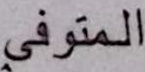 المتوفي